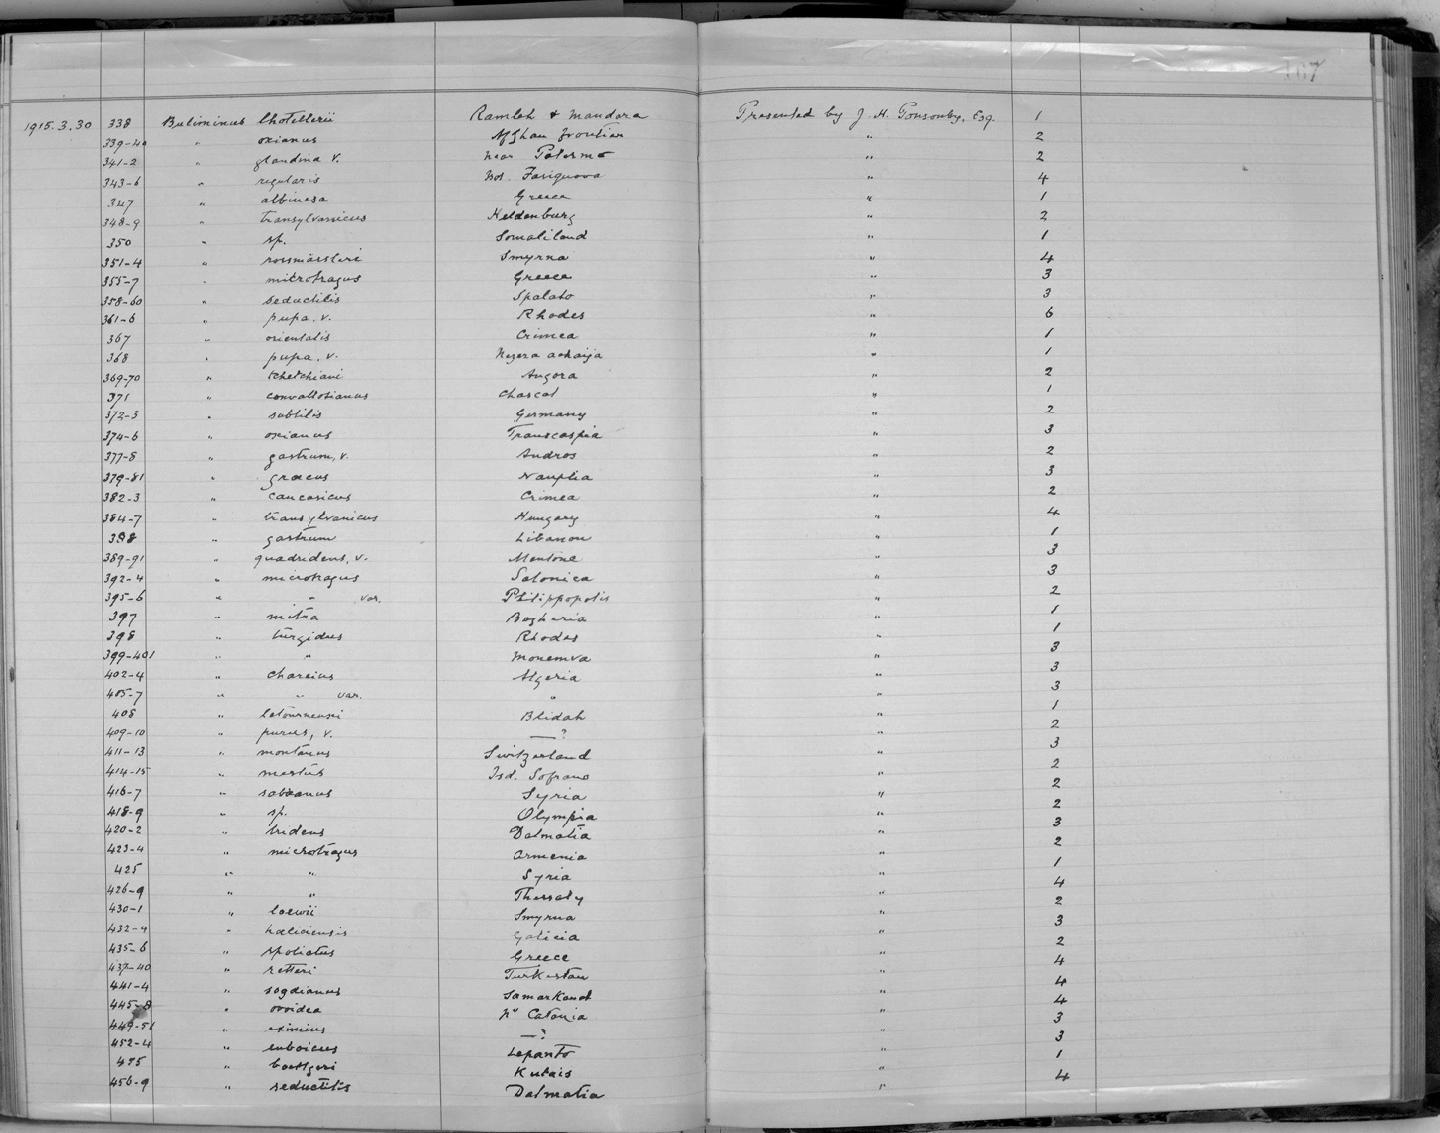 167
1915.3.30 338 Buliminus lhotellerii Ramleh & Mandara Presented by J. H. Ponsonby, Esq. 1
339-40 " oxianus Afghan frontier " 2
341-2 " glandina v. near Palermo " 2
343-6 " regularis " 4
347 " albinesa Greece " 1
348-9 " transylvanicus Heldenburg " 2
350 " sp. Somaliland " 1
351-4 " rossmässleri Smyrna " 4
355-7 " microtragus Greece " 3
358-60 " seductilis Spalato " 3
361-6 " pupa, v. Rhodes " 6
367 " orientalis Crimea " 1
368 " pupa, v. achaija " 1
369-70 " tchetchiani Angora " 2
371 " convallotianus Charcat " 1
372-3 " subtilis Germany " 2
374-6 " oxianus Transcaspia " 3
377-8 " gastrum, v. Andros " 2
379-81 " graecus Nauplia " 3
382-3 " caucasicus Crimea " 2
384-7 " transylvanicus Hungary " 4
388 " gastrum Libanon " 1
389-91 " quadridens, v. Mentone " 3
392-4 " microtragus Salonica " 3
395-6 " " var. Philippopolis " 2
397 " mitra Bagheria " 1
398 " turgidus Rhodes " 1
399-401 " " Monemva " 3
402-4 " chareius Algeria " 3
405-7 " " var. " " 3
408 " letourneuxi Blidah " 1
409-10 " purus, v. —? " 2
411-13 " montanus Switzerland " 3
414-15 " mestus Isd. Sofrano " 2
416-7 " sabaanus Syria " 2
418-9 " sp. Olympia " 2
420-2 " tridens Dalmatia " 3
423-4 " microtragus Armenia " 2
425 " " Syria " 1
426-9 " " Thessaly " 4
430-1 " loewii Smyrna " 2
432-4 " haliciensis Galicia " 3
435-6 " spoliatus Greece " 2
437-40 " retteri Turkestan " 4
441-4 " sogdianus Samarkand " 4
445-8 " ovoidea Nr Catania " 4
449-51 " eximius —? " 3
452-4 " euboicus Lepanto " 3
455 " boettgeri Kutais " 1
456-9 " seductilis Dalmatia " 4